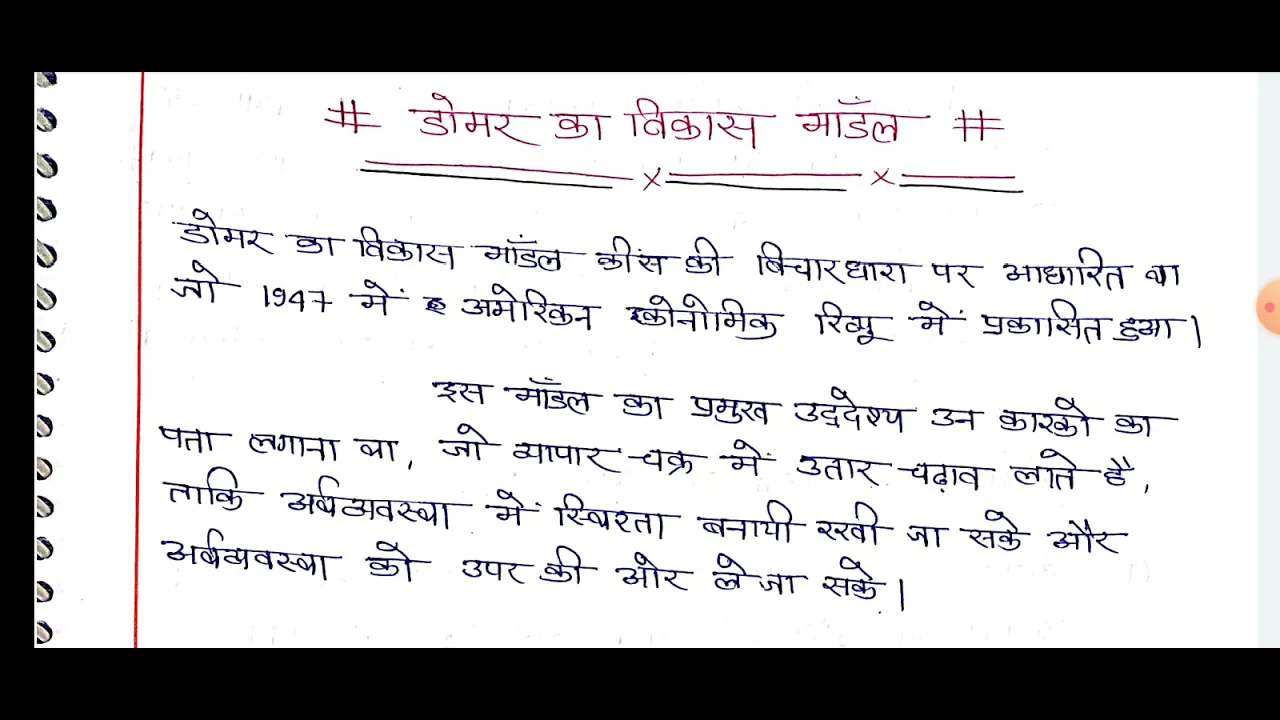 # डोमर का विकास मॉडल #
डोमर का विकास मॉडल कींस की विचारधारा पर आधारित था
जो 1947 में अमेरिकन इकोनोमिक रिव्यू में प्रकासित हुआ।
इस मॉडल का प्रमुख उद्देश्य उन कारको का
पता लगाना था, जो व्यापार चक्र में उतार चढ़ाव लाते है,
ताकि अर्थव्यवस्था में स्थिरता बनायी रखी जा सके और
अर्थव्यवस्था को उपर की ओर ले जा सके।